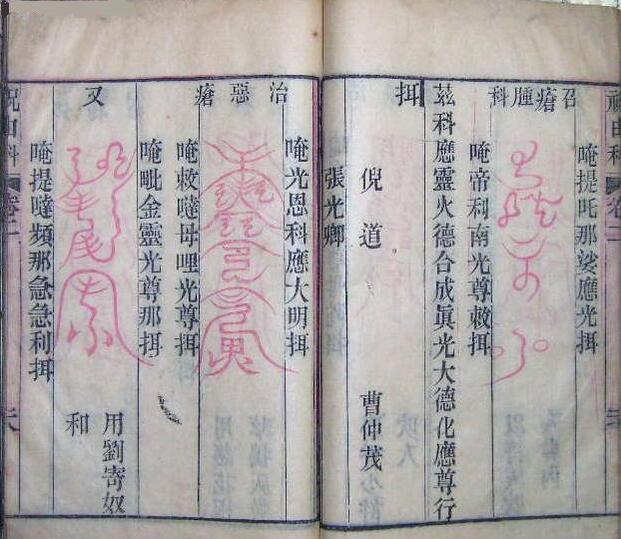 祝由科 卷二
唵提吒那娑應光挕
召瘡腫科
唵帝利南光尊敕挕
茲科應靈火德合成眞光大德化應尊行
挕
倪道
曹仲茂
張光卿
治惡瘡
唵光恩科應大明挕
唵敕噠母哩光尊挕
唵毗金靈光尊那挕
又
用劉寄奴
和
唵提噠頻那急急利挕
祝由科 卷二